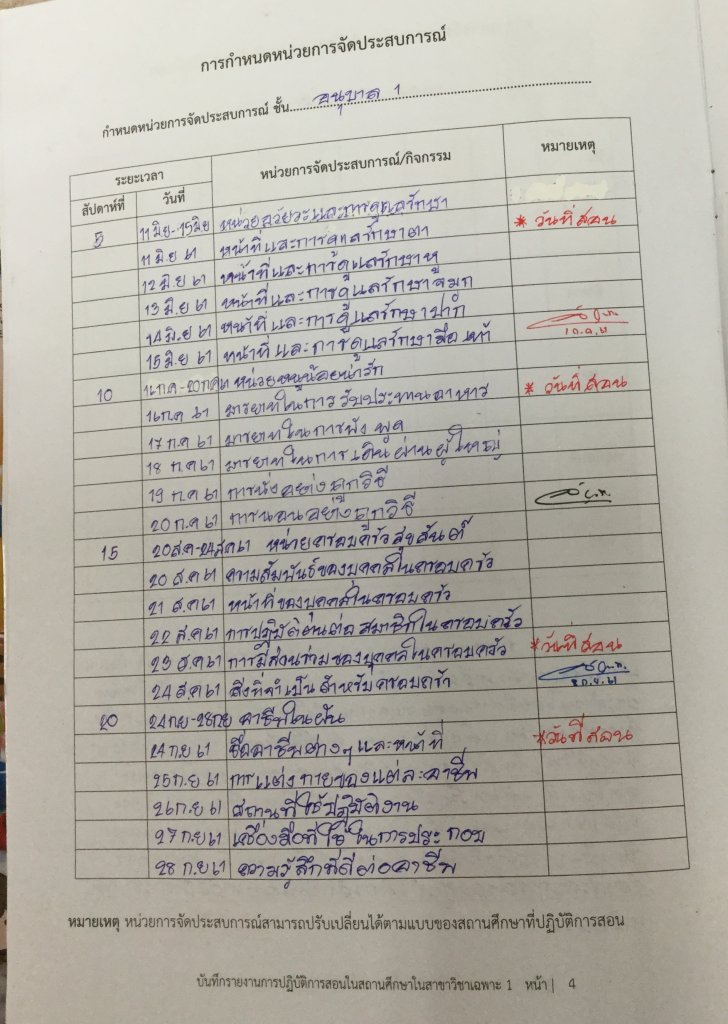 การกำหนดหน่วยการจัดประสบการณ์
กำหนดหน่วยการจัดประสบการณ์ ชั้น อนุบาล 1
ระยะเวลา หน่วยการจัดประสบการณ์/กิจกรรม หมายเหตุ
สัปดาห์ที่ วันที่
5 11 มิย-15 มิย หน่วยอวัยวะและการดูแลรักษา
11 มิ.ย 61 หน้าที่และการดูแลรักษาตา * วันที่สอน
12 มิ.ย 61 หน้าที่และการดูแลรักษาหู
13 มิ.ย 61 หน้าที่และการดูแลรักษาจมูก
14 มิ.ย 61 หน้าที่และการดูแลรักษาปาก
15 มิ.ย 61 หน้าที่และการดูแลรักษามือ เท้า
10 16 ก.ค-20 ก.ค 61 หน่วยหนูน้อยน่ารัก
16 ก.ค 61 มารยาทในการรับประทานอาหาร * วันที่สอน
17 ก.ค 61 มารยาทในการฟัง พูด
18 ก.ค 61 มารยาทในการเดินผ่านผู้ใหญ่
19 ก.ค 61 การนั่งอย่างถูกวิธี
20 ก.ค 61 การนอนอย่างถูกวิธี
15 20 ส.ค-24 ส.ค 61 หน่วยครอบครัวสุขสันต์
20 ส.ค 61 ความสัมพันธ์ของบุคคลในครอบครัว
21 ส.ค 61 หน้าที่ของบุคคลในครอบครัว
22 ส.ค 61 การปฏิบัติตนต่อสมาชิกในครอบครัว
23 ส.ค 61 การมีส่วนร่วมของบุคคลในครอบครัว * วันที่สอน
24 ส.ค 61 สิ่งที่จำเป็นสำหรับครอบครัว
20 24 กย-28 กย อาชีพในฝัน
24 ก.ย 61 ชื่ออาชีพต่างๆและหน้าที่ * วันที่สอน
25 ก.ย 61 การแต่งกายของแต่ละอาชีพ
26 ก.ย 61 สถานที่ใช้ปฏิบัติงาน
27 ก.ย 61 เครื่องมือที่ใช้ในการประกอบ
28 ก.ย 61 ความรู้สึกที่ดีต่ออาชีพ
หมายเหตุ หน่วยการจัดประสบการณ์สามารถปรับเปลี่ยนได้ตามแบบของสถานศึกษาที่ปฏิบัติการสอน
บันทึกรายงานการปฏิบัติการสอนในสถานศึกษาในสาขาวิชาเฉพาะ 1 หน้า | 4